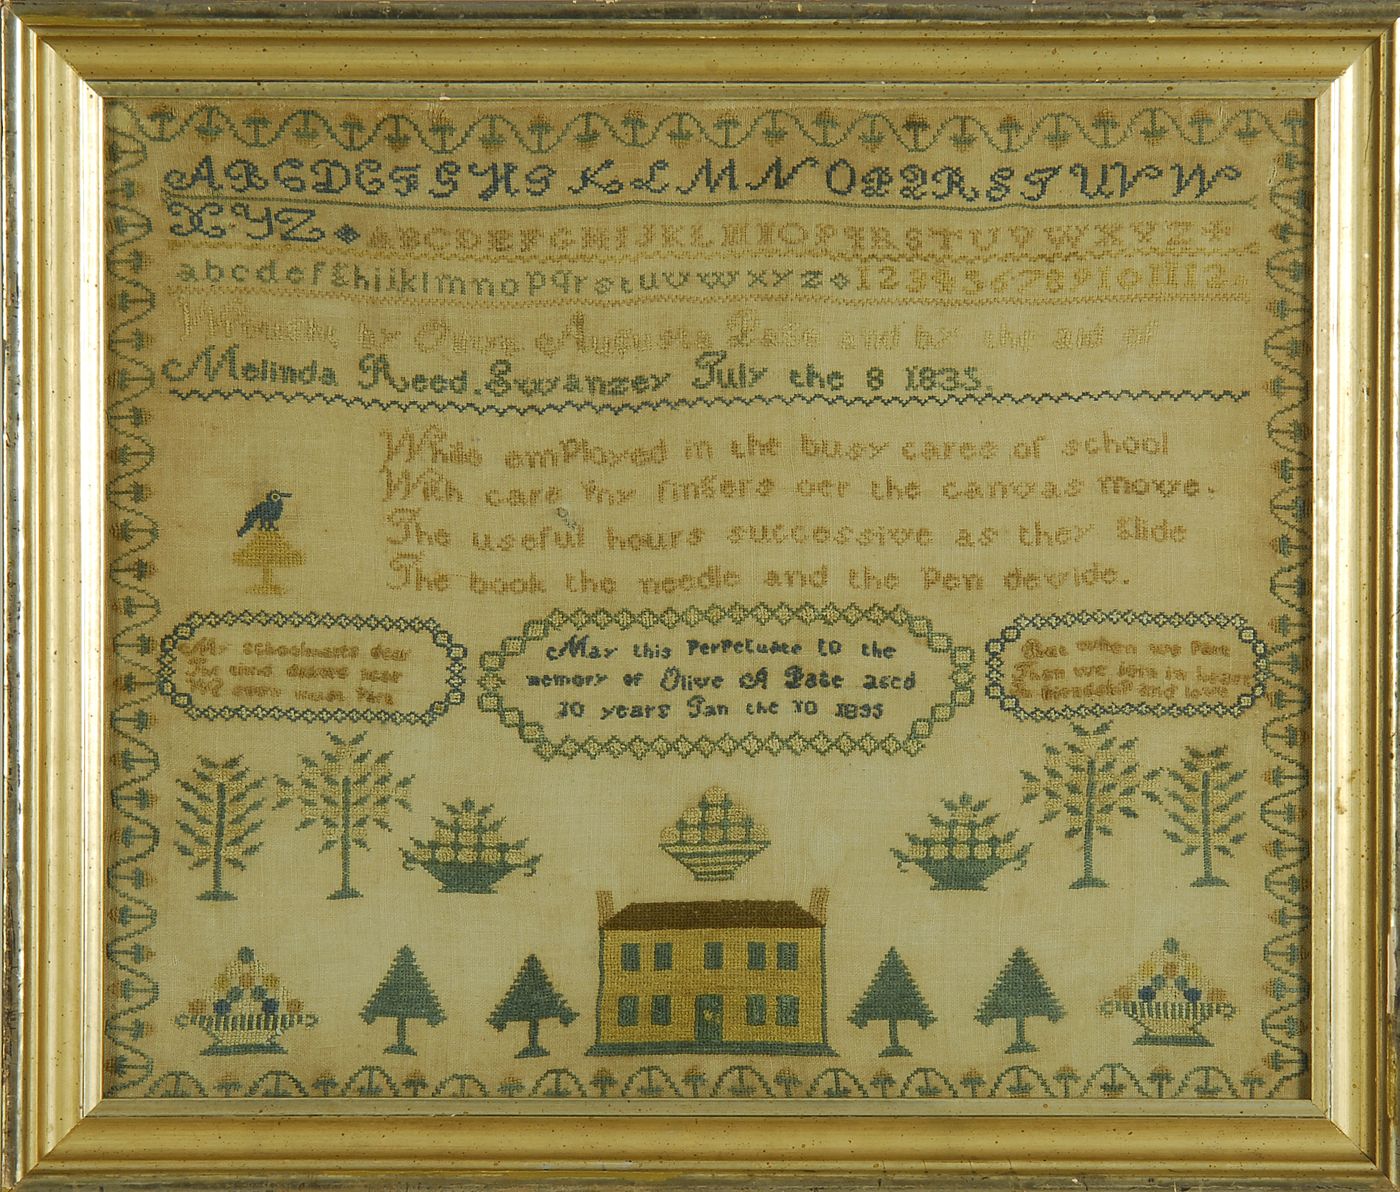 A B C D E F G H I K L M N O P Q R S T U V W
X Y Z A B C D E F G H I J K L M N O P Q R S T U V W X Y Z
a b c d e f g h i j k l m n o p q r s t u v w x y z 1 2 3 4 5 6 7 8 9 10 11 12
Wrought by Olive Augusta Pate and by the aid of
Melinda Reed. Swanzey July the 8 1835.
While employed in the busy cares of school
With care my fingers oer the canvas move.
The useful hours successive as they glide
The book the needle and the pen devide.
My schoolmates dear
The time draws near
We soon must part
May this perpetuate to the
memory of Olive A Pate aged
10 years Jan the 10 1835
But when we part
Then we join in heart
in friendship and love